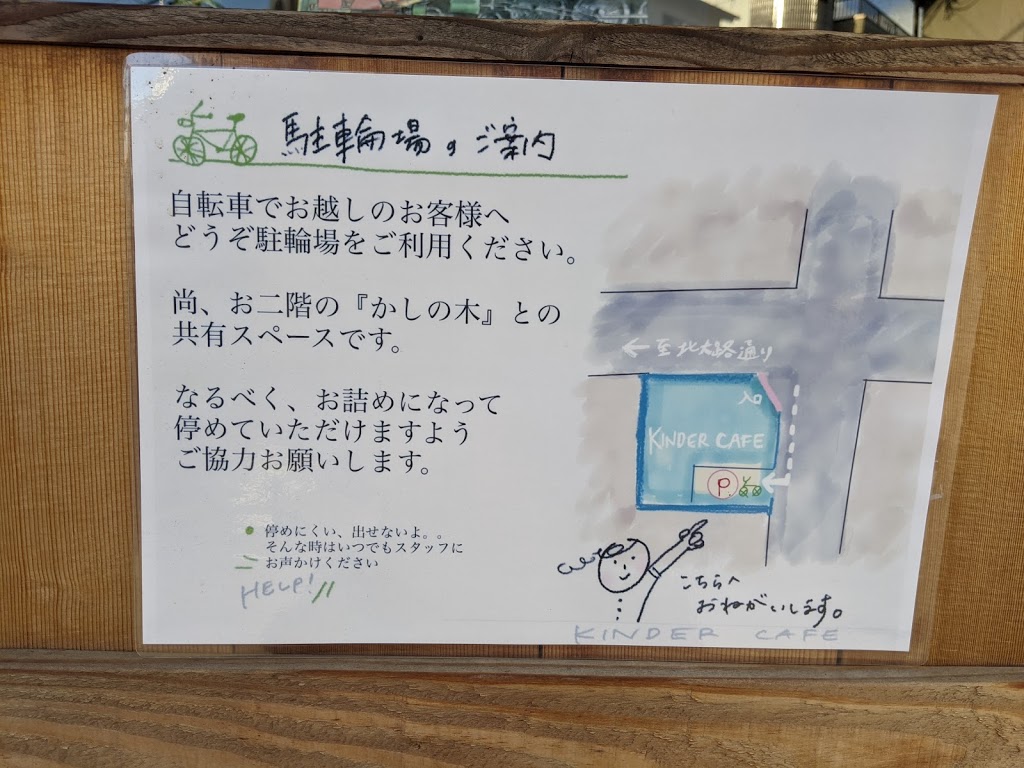 駐輪場のご案内
自転車でお越しのお客様へ
どうぞ駐輪場をご利用ください。
尚、お二階の『かしの木』との
共有スペースです。
なるべく、お詰めになって
停めていただけますよう
ご協力お願いします。
停めにくい、出せないよ。。
そんな時はいつでもスタッフに
お声かけください
HELP!
← 至北大路通り
入口
KINDER CAFE
P
こちらへ
おねがいします。
KINDER CAFE